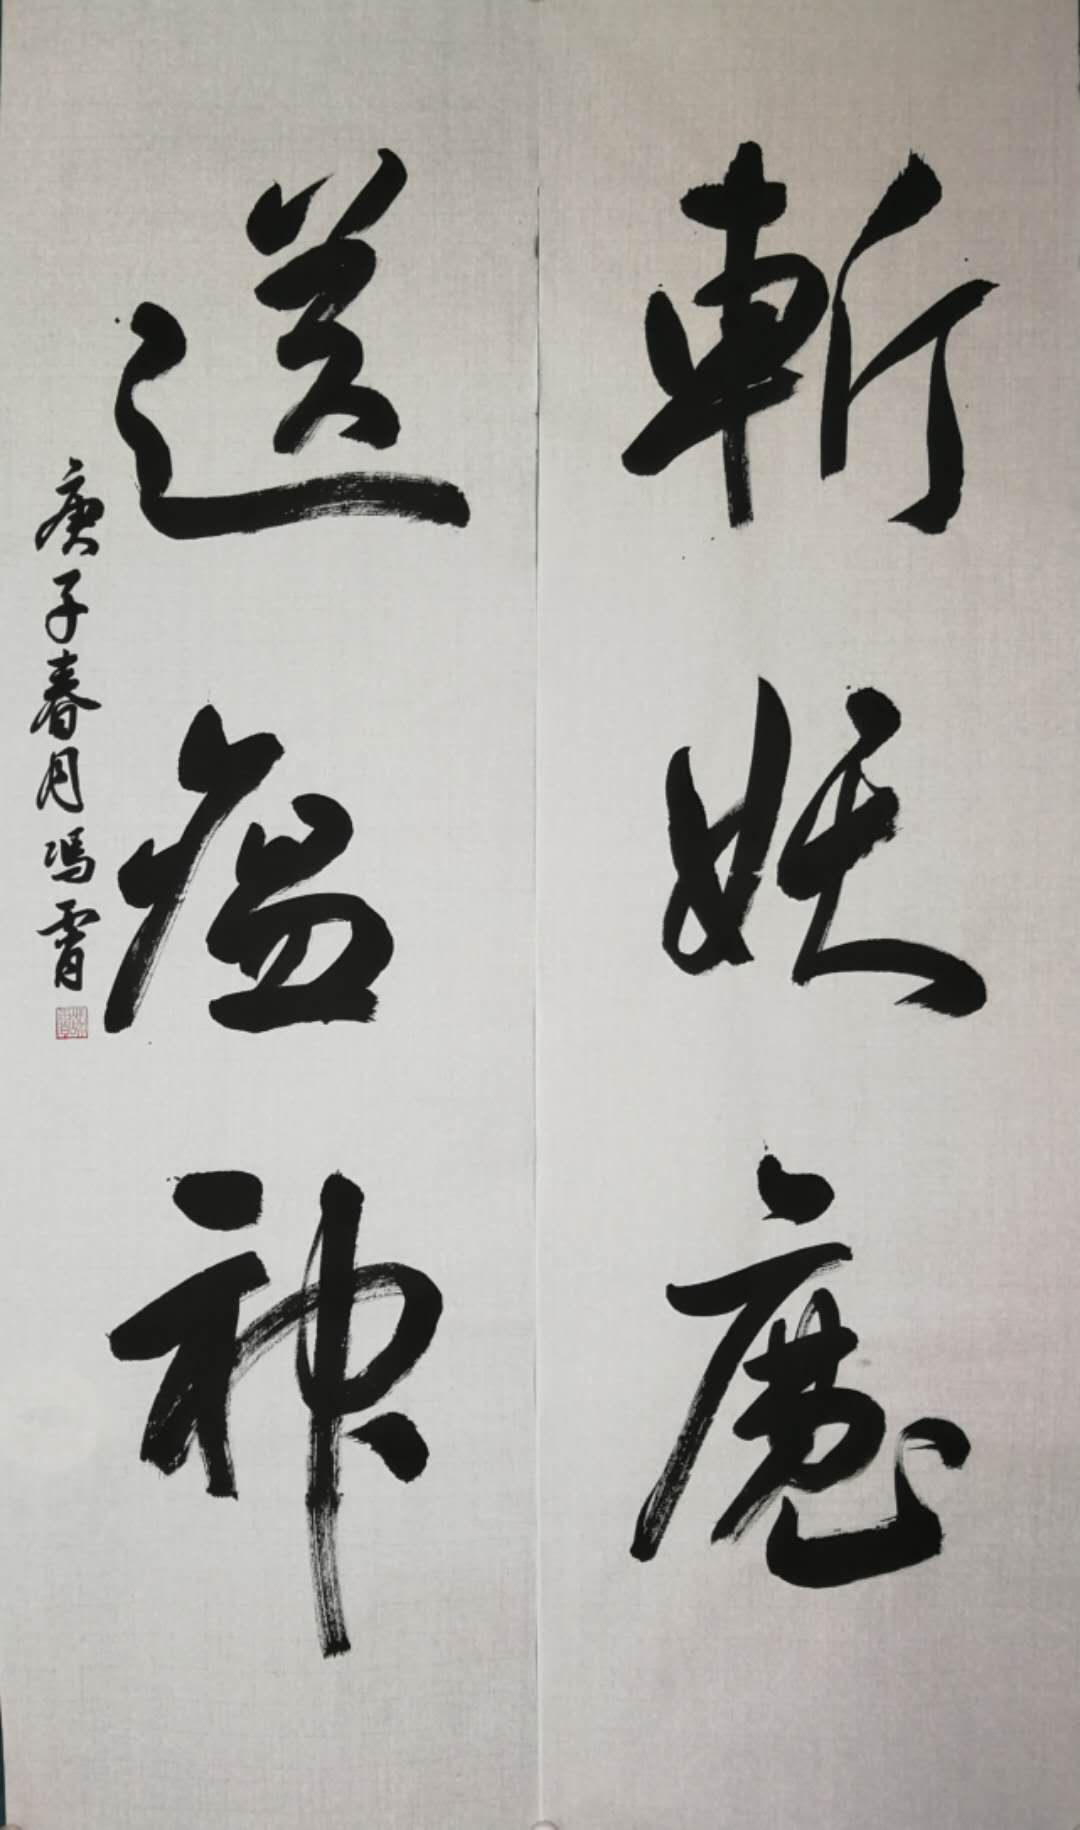 斬妖魔
送瘟神
庚子春月馮霄